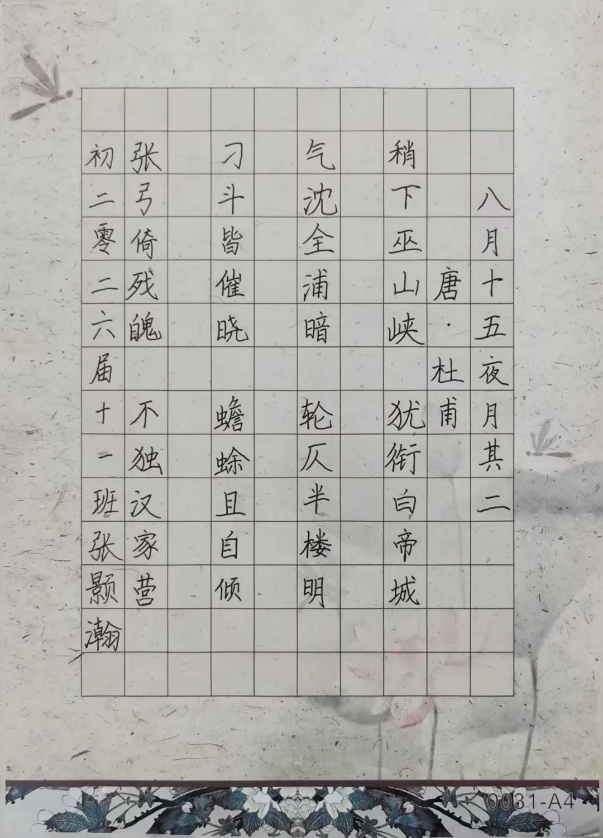 八月十五夜月其二
唐·杜甫
稍下巫山峡 犹衔白帝城
气沈全浦暗 轮仄半楼明
刁斗皆催晓 蟾蜍且自倾
张弓倚残魄 不独汉家营
初二零二六届十一班张颢瀚
0031-A4